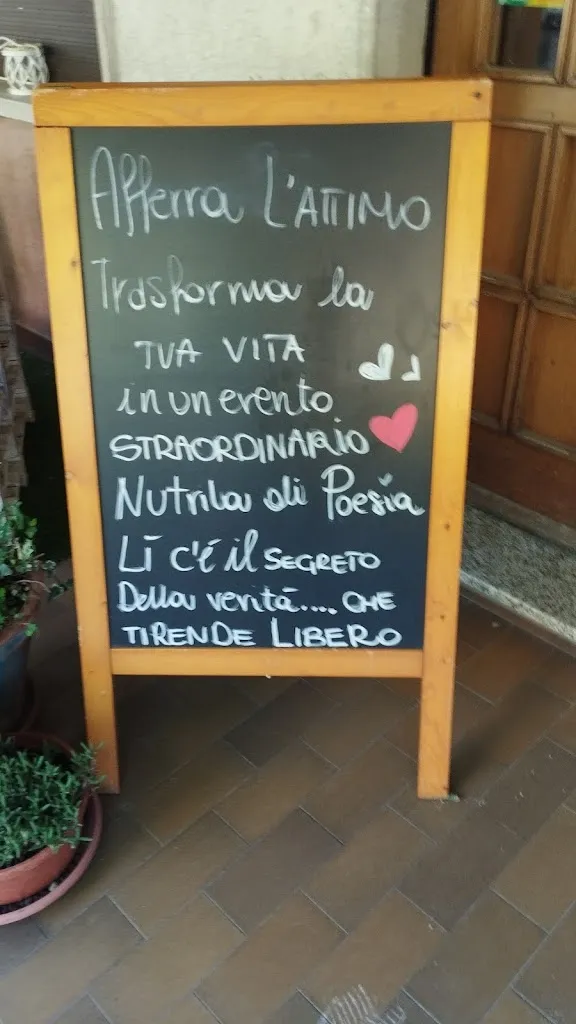 Afferra L'ATTIMO
Trasforma la
TUA VITA
in un evento
STRAORDINARIO
Nutrila di Poesia
Lì c'é il SEGRETO
Della veritá.... CHE
TIRENDE LIBERO